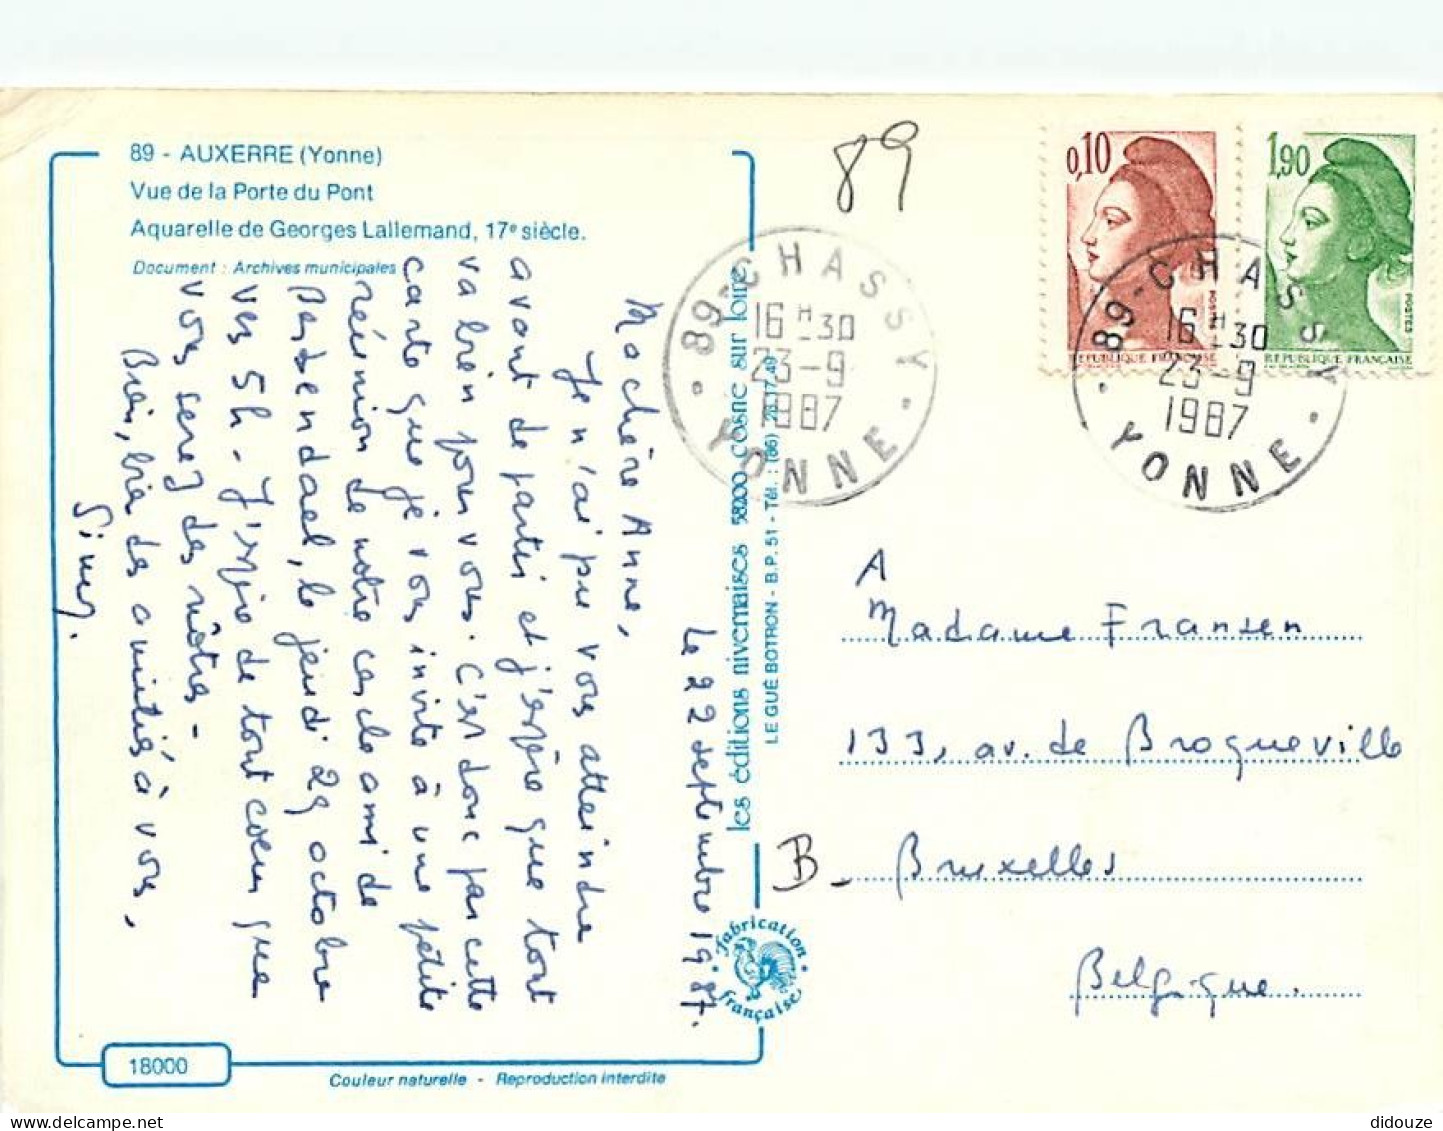 89 - AUXERRE (Yonne)
Vue de la Porte du Pont
Aquarelle de Georges Lallemand, 17e siècle.
Document : Archives municipales
Le 22 septembre 1987.
Ma chère Anne,
Je n'ai pu vous atteindre
avant de partir et j'espère que tout
va bien pour vous. C'est donc par cette
carte que je vous invite à une petite
réunion de notre cercle ami de
le jeudi 29 octobre
vers 5h - J'espère de tout coeur que
vous serez des nôtres -
Bien, bien des amitiés à vous,
18000
Couleur naturelle - Reproduction interdite
les éditions nivernaises 58200 cosne sur loire
LE GUÉ BOTRON - B.P. 51 - Tél. : (86) 28.17.49
fabrication
française
89
0,10
POSTES
REPUBLIQUE FRANÇAISE
1,90
POSTES
REPUBLIQUE FRANÇAISE
89-CHASSY
16 H 30
23-9
1987
YONNE
89-CHASSY
16 H 30
23-9
1987
YONNE
A
Madame Fransen
133, av. de Broqueville
B - Bruxelles
Belgique.
didouze